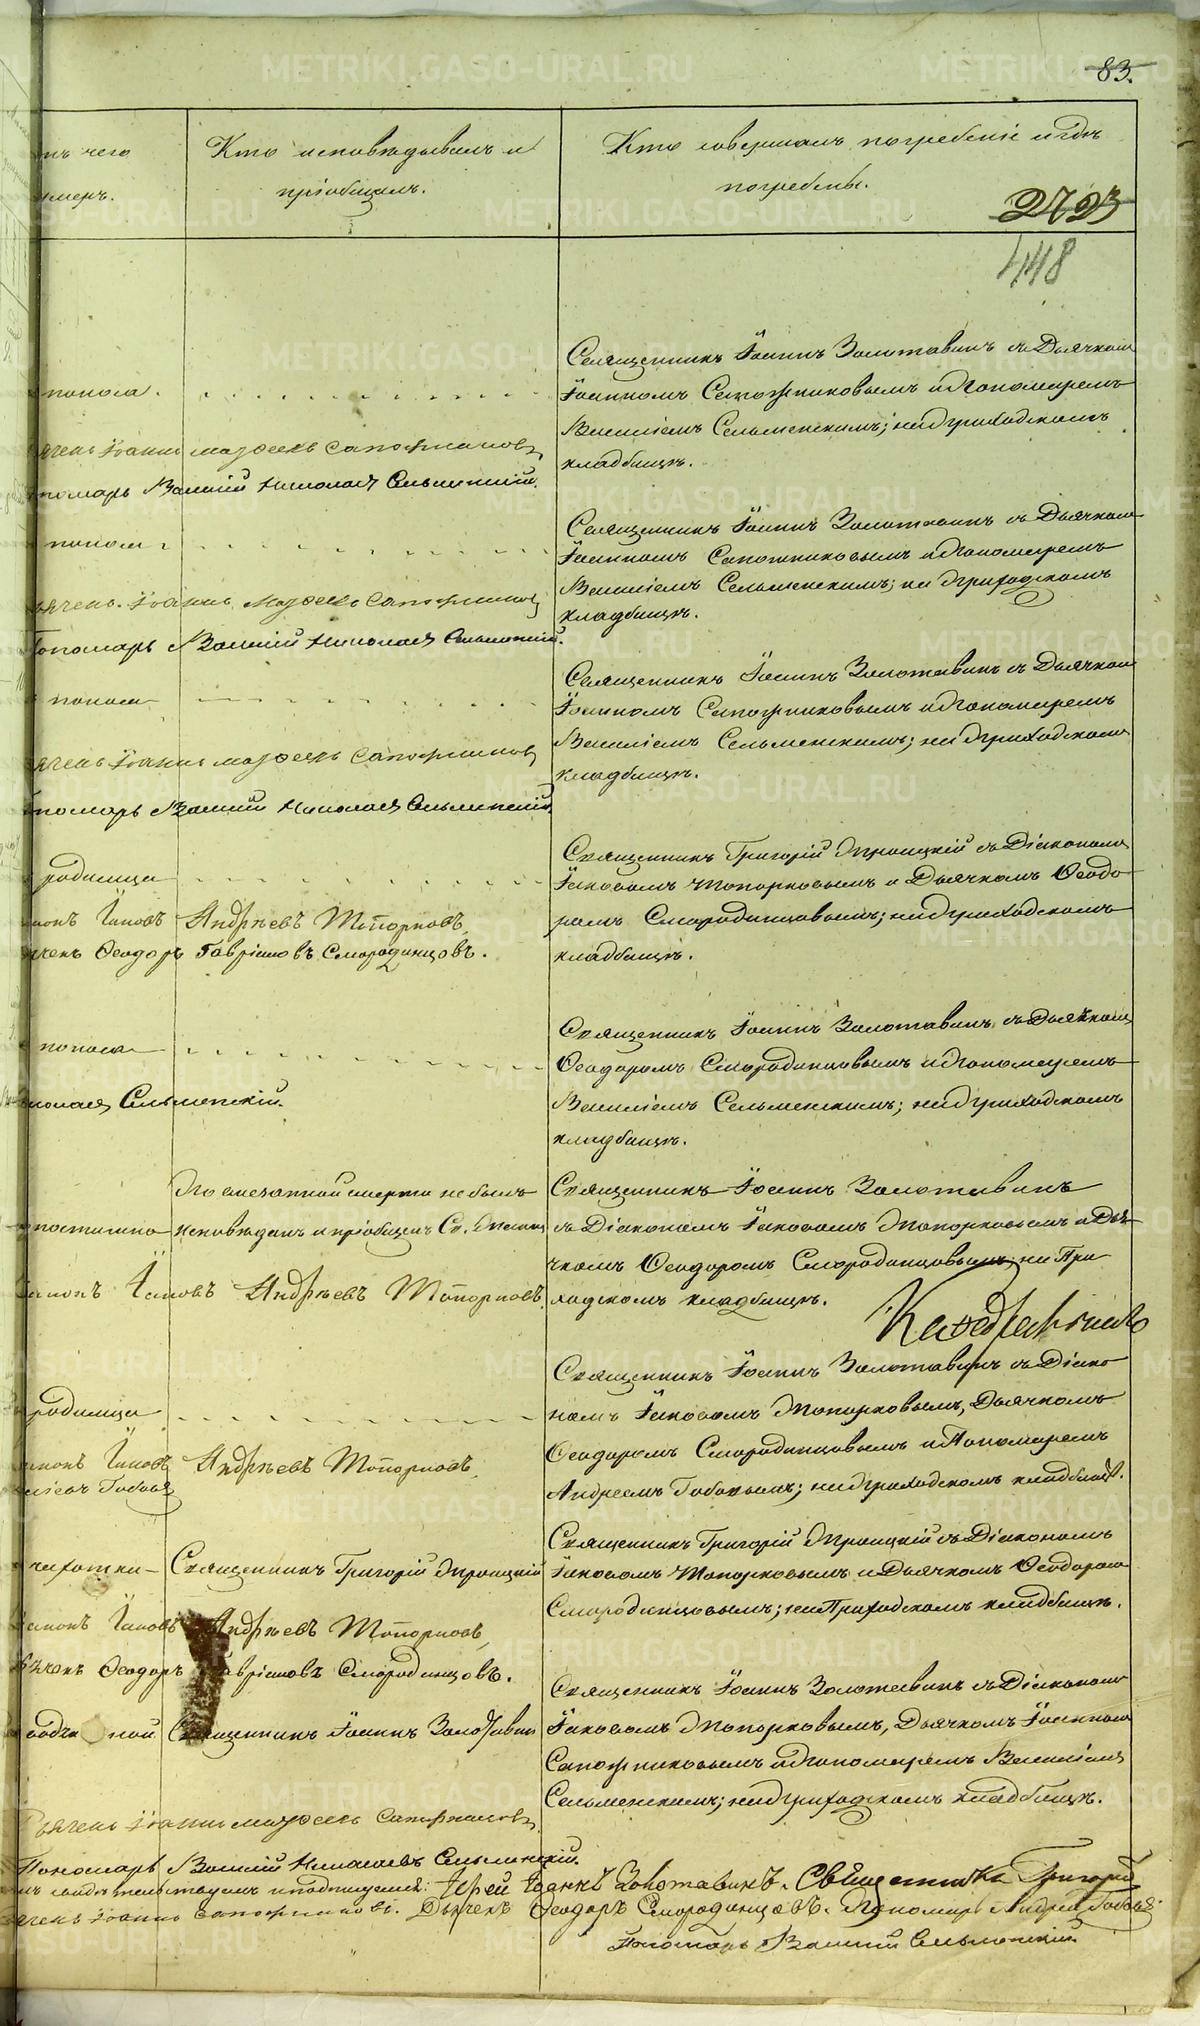 83.
отъ чего
умеръ.
Кто исповѣдывалъ и
пріобщалъ.
Кто совершалъ погребеніе и гдѣ
погребены.
2723
448
поноса.
Священникъ Іоаннъ Золотавинъ съ Дьячкомъ
Іоанномъ Сапожниковымъ и Пономаремъ
Василіемъ Сельменскимъ; на Приходскомъ
кладбищѣ.
Дьячекъ Іоаннъ Сапожниковъ
Пономарь Василій Николаевъ Сельменскій.
поноса
Священникъ Іоаннъ Золотавинъ съ Дьячкомъ
Іоанномъ Сапожниковымъ и Пономаремъ
Василіемъ Сельменскимъ; на Приходскомъ
кладбищѣ.
Дьячекъ Іоаннъ Сапожниковъ
Пономарь Василій Николаевъ Сельменскій.
поноса
Священникъ Іоаннъ Золотавинъ съ Дьячкомъ
Іоанномъ Сапожниковымъ и Пономаремъ
Василіемъ Сельменскимъ; на Приходскомъ
кладбищѣ.
Дьячекъ Іоаннъ Сапожниковъ
Пономарь Василій Николаевъ Сельменскій.
родимца
Священникъ Григорій Троицкій съ Діакономъ
Іаковомъ Топорковымъ и Дьячкомъ Ѳеодо
ромъ Смородинцовымъ; на Приходскомъ
кладбищѣ.
Діаконъ Іаковъ Андрѣевъ Топорковъ,
Дьячекъ Ѳеодоръ Гавріиловъ Смородинцовъ.
поноса
Священникъ Іоаннъ Золотавинъ съ Дьячкомъ
Ѳеодоромъ Смородинцовымъ и Пономаремъ
Василіемъ Сельменскимъ; на Приходскомъ
кладбищѣ.
Николаевъ Сельменскій.
По внезапной смерти не былъ
исповѣданъ и пріобщенъ Св. Таинъ
Священникъ Іоаннъ Золотавинъ
съ Діакономъ Іаковомъ Топорковымъ и Дья
чкомъ Ѳеодоромъ Смородинцовымъ; на При
ходскомъ кладбищѣ.
Діаконъ Іаковъ Андрѣевъ Топорковъ,
родимца
Священникъ Іоаннъ Золотавинъ съ Діако
номъ Іаковомъ Топорковымъ, Дьячкомъ
Ѳеодоромъ Смородинцовымъ и Пономаремъ
Андреемъ; на Приходскомъ кладбищѣ.
Діаконъ Іаковъ Андрѣевъ Топорковъ,
чахотки
Священникъ Григорій Троицкій
Священникъ Григорій Троицкій съ Діакономъ
Іаковомъ Топорковымъ и Дьячкомъ Ѳеодоромъ
Смородинцовымъ; на Приходскомъ кладбищѣ.
Діаконъ Іаковъ Андрѣевъ Топорковъ,
Дьячекъ Ѳеодоръ Гавріиловъ Смородинцовъ.
Священникъ Іоаннъ Золотавинъ
Священникъ Іоаннъ Золотавинъ съ Діакономъ
Іаковомъ Топорковымъ, Дьячкомъ Іоанномъ
Сапожниковымъ и Пономаремъ Василіемъ
Сельменскимъ; на Приходскомъ кладбищѣ.
Дьячекъ Іоаннъ Сапожниковъ
Пономарь Василій Николаевъ Сельменскій.
Іерей Іоаннъ Золотавинъ. Священникъ Григорій
Дьячекъ Іоаннъ Сапожниковъ. Дьячекъ Ѳеодоръ Смородинцовъ. Пономарь Андрей
Пономарь Василій Сельменскій.
METRIKI.GASO-URAL.RU